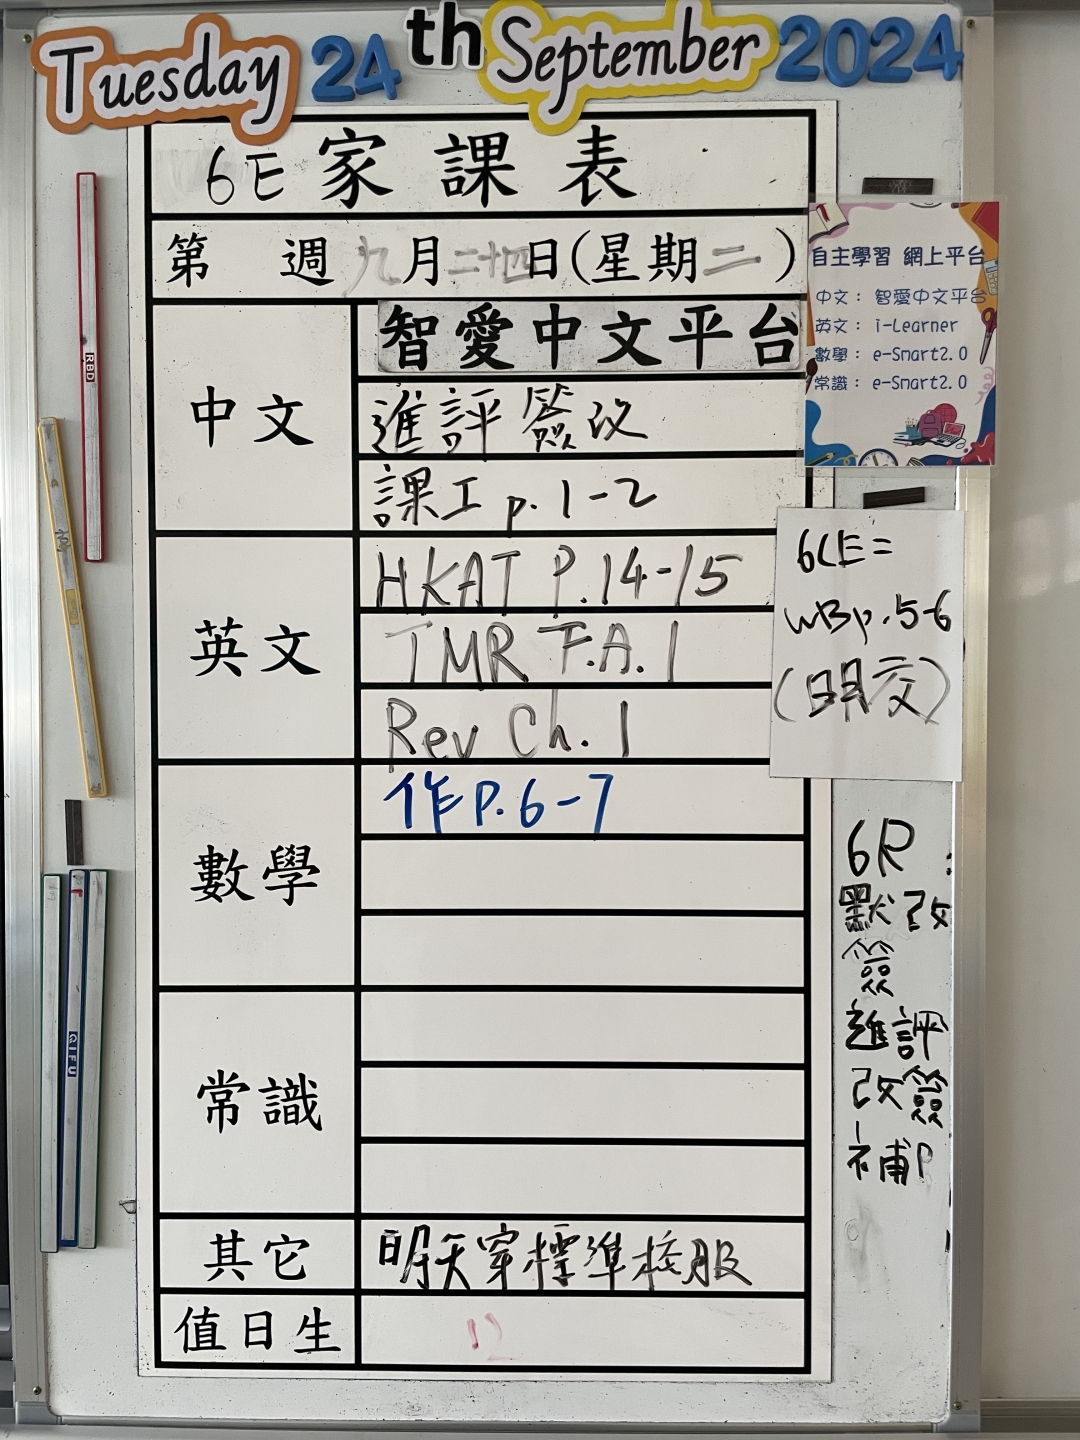 Tuesday 24th September 2024
6E 家課表
第 週 九月二十四日(星期二)
中文
智愛中文平台
進評簽改
課工 p. 1-2
英文
HKAT P.14-15
TMR F.A. 1
Rev Ch. 1
數學
作P.6-7
常識
其它
明天穿標準校服
值日生
12
自主學習 網上平台
中文： 智愛中文平台
英文： i-Learner
數學： e-Smart2.0
常識： e-Smart2.0
6CE=
WBp.5-6
(明交)
6R:
默改
簽
進評
改簽
補P
RBD
QIFU